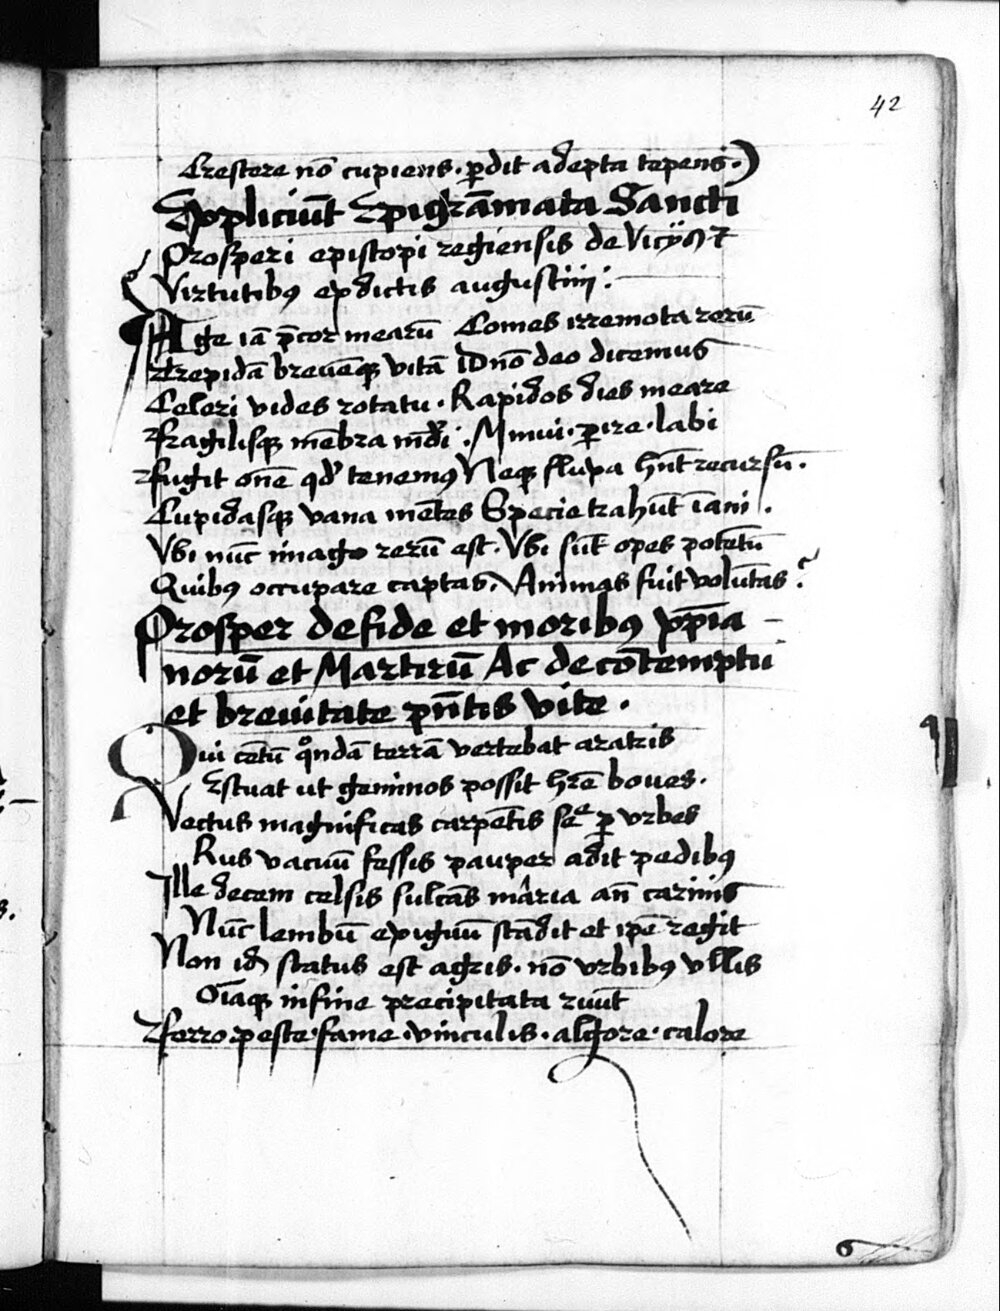 42
Crescere nō cupiens . ꝑdit adepta tepens .)
Expliciūt Epigrāmata Sancti
Prosperi episcopi regiensis de Vicijs ⁊
Virtutibꝰ ex dictis augustini :
Age iā p̄cor mearū Comes irremota rerū
Trepidā breuēqꝫ vitā Dn̄o deo dicemus
Celeri vides rotatu . Rapidos dies meare
Fragilisqꝫ mēbra mūdi . Minui . ꝑire . labi
Fugit om̄e qd̛ tenemꝰ Neqꝫ fluxa hn̄t recursū .
Cupidasqꝫ vana mētes Specie trahūt īani .
Vbi nūc imago rerū est . Vbi sūt opes potētū
Quibꝰ occupare captas . Animas fuit volūtas ?
Prosper de fide et moribꝰ xp̄ia -
norū et Martirū Ac de cōtemptu
et breuitate pn̄tis vite .
Qui cētū qͦndā terrā vertebat aratris
Estuat ut geminos possit hr̄e boues .
Vectus magnificas carpētis sepe ꝑ vrbes
Rus vacuū fessis pauper adit pedibꝰ
Ille decem celsis sulcās maria an̄ carinis
Nūc lembū exiguū scādit et ip̄e regit
Non idē status est agris . nō vrbibꝰ vllis
Oīaqꝫ in fine precipitata ruūt
Ferro . peste . fame . vinculis . algore . calore